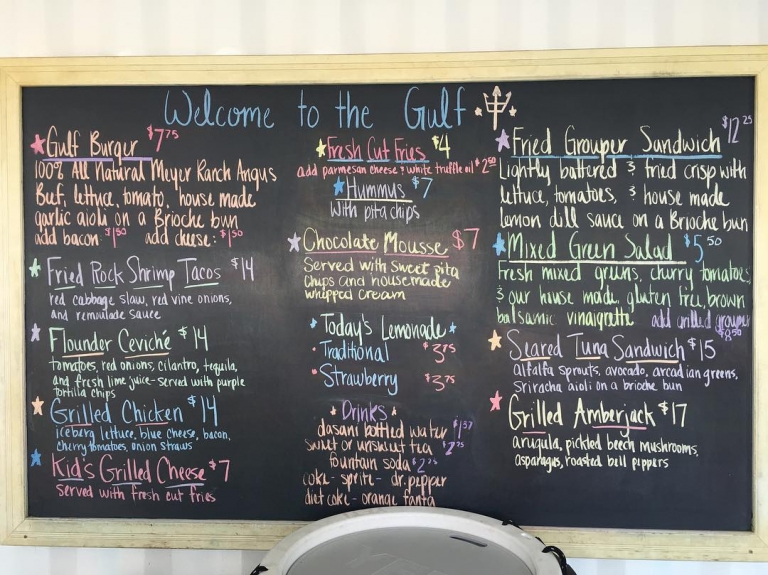 Welcome to the Gulf
Gulf Burger $7.75
100% All Natural Meyer Ranch Angus
Beef, lettuce, tomato, house made
garlic aioli on a Brioche bun
add bacon: $1.50 add cheese: $1.50
Fried Rock Shrimp Tacos $14
red cabbage slaw, red vine onions,
and remulade sauce
Flounder Ceviché $14
tomatoes, red onions, cilantro, tequila,
and fresh lime juice - served with purple
tortilla chips
Grilled Chicken $14
iceberg lettuce, blue cheese, bacon,
cherry tomatoes, onion straws
Kid's Grilled Cheese $7
served with fresh cut fries
Fresh Cut Fries $4
add parmesan cheese & white truffle oil $2.50
Hummus $7
with pita chips
Chocolate Mousse $7
Served with sweet pita
chips and housemade
whipped cream
Today's Lemonade
Traditional $3.75
Strawberry $3.75
Drinks
dasani bottled water $1.57
sweet or unsweet tea $2.75
fountain soda $2.75
coke - sprite - dr. pepper
diet coke - orange fanta
Fried Grouper Sandwich $12.25
Lightly battered & fried crisp with
lettuce, tomatoes, & house made
lemon dill sauce on a Brioche bun
Mixed Green Salad $5.50
Fresh mixed greens, cherry tomatoes,
& our house made, gluten free, brown
balsamic vinaigrette add grilled grouper
$8.50
Seared Tuna Sandwich $15
alfalfa sprouts, avocado, arcadian greens,
sriracha aioli on a brioche bun
Grilled Amberjack $17
arugula, pickled beech mushrooms,
asparagus, roasted bell peppers